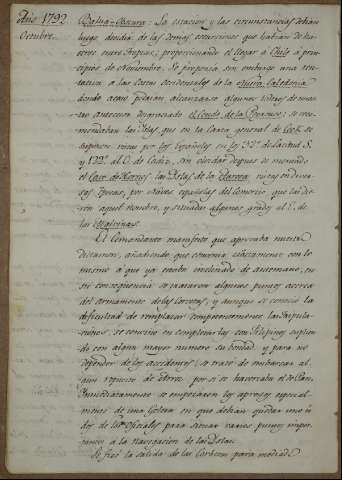 Año 1792.
Octubre.
Batha-Obscura: La estacion y las circunstancias debian
luego decidir de las demas excursiones que habian de ha-
cerse entre Tropicos, proporcionando el llegar á Chile á prin-
cipios de Noviembre. Se proponia sin embargo una ten-
tativa a las Costas Occidentales de la Nueva Caledonia
donde aquí podrian alcanzarse algunas noticias de nues-
tro anterior desgraciado el Conde de la Perouse; se reco-
mendaban las Yslas, que en la Carta general de Cook se
suponen vistas por los Españoles en los 32º de Latitud S.
y 122º al O. de Cadiz, sin olvidar despues de montado
el Cavo de Hornos las Yslas de la Aurora vistas en diver-
sas Epocas, por Naves españolas del Comercio que las die-
ron aquel nombre, y situadas algunos grados al E. de
las Malvinas.
El Comandante manifestó que aprovaba nuestro
dictamen, añadiendo que convenia exactamente con lo
mismo a que ya estaba inclinado de antemano, en
su consequencia se trataron algunos puntos acerca
del armamento de las Corvetas, y aunque se conoció la
dificultad de remplazar competentemente las tripula-
ciones, se convino en completarlas con Filipinos suplien-
do con algun mayor numero su bondad, y para no
depender de los accidentes, se trató de embarcar al-
gun repuesto de viveres por si se haveriaba el de Pan.
Inmediatamente se empezaron los aprestos, especial-
mente de una Goleta en que debian quedar uno ó
dos de los Oficiales para situar varios puntos impor-
tantes a la navegacion de las Yslas.
Se fixó la salida de las Corbetas para mediad